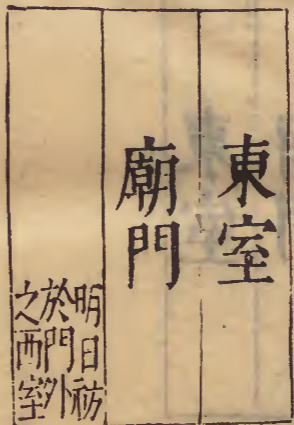 東室
廟門
明日祊
於門外
之西室